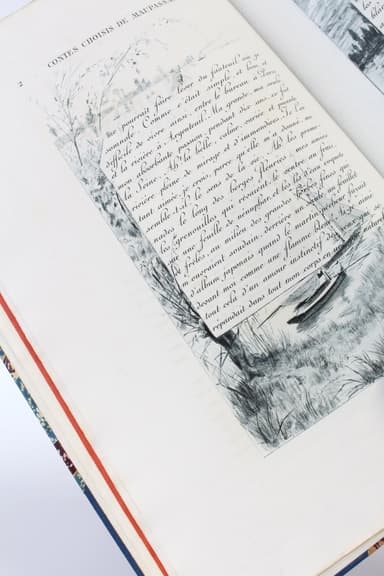 2 CONTES CHOISIS DE MAUPASSA
me pourrait faire lever du fauteuil où je
Comme c'était simple, et bon, et
difficile de vivre ainsi, entre le bureau à Paris
et la rivière à Argenteuil. Ma grande, ma seule,
mon absorbante passion, pendant dix ans, ce fut
la Seine. Ah! la belle, calme, variée et puante
rivière pleine de mirage et d'immondices. Je l'ai
tant aimée, je crois, parce qu'elle m'a donné, me
semble-t-il, le sens de la vie. Ah! les prome-
nades le long des berges fleuries, mes amies
les grenouilles qui rêvaient, le ventre au frais,
sur une feuille de nénuphar, et les lis d'eau coquets
et frêles, au milieu des grandes
m'ouvraient soudain, derrière un feuillet
d'album japonais quand le martin
devant moi comme une flamme bleue!
tout cela, d'un amour instinctif
répandait dans tout mon corps en